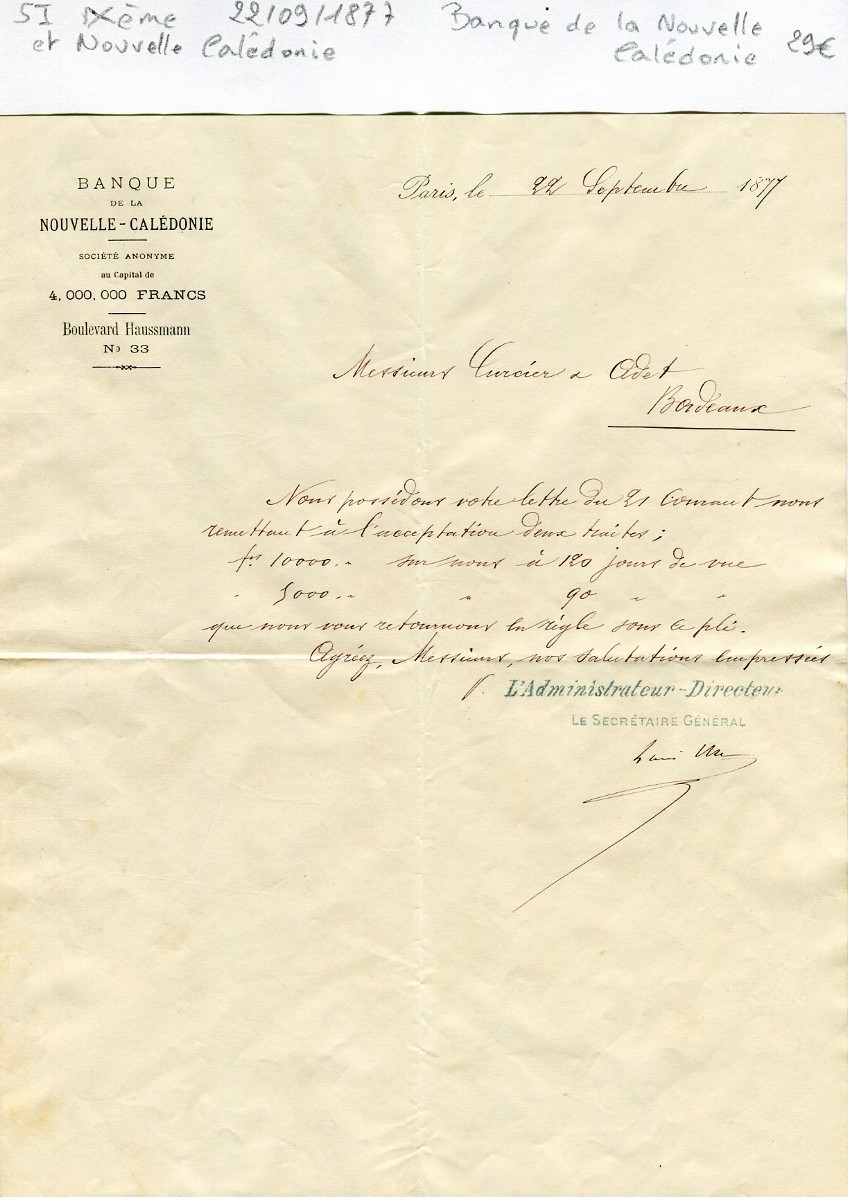 5I IXème 22/09/1877 Banque de la Nouvelle
et Nouvelle Calédonie Calédonie 29€
BANQUE
DE LA
NOUVELLE-CALÉDONIE
SOCIÉTÉ ANONYME
au Capital de
4,000,000 FRANCS
Boulevard Haussmann
No 33
Paris, le 22 Septembre 1877
Messieurs Curcier & Adet
Bordeaux
Nous possédons votre lettre du 21 Courant nous
remettant à l'acceptation deux traites ;
frs 10000 .. sur nous à 120 jours de vue
" 5000 .. " 90 " "
que nous vous retournons en règle sous ce pli.
Agréez, Messieurs, nos salutations empressées
P. L'Administrateur-Directeur
LE SECRÉTAIRE GÉNÉRAL